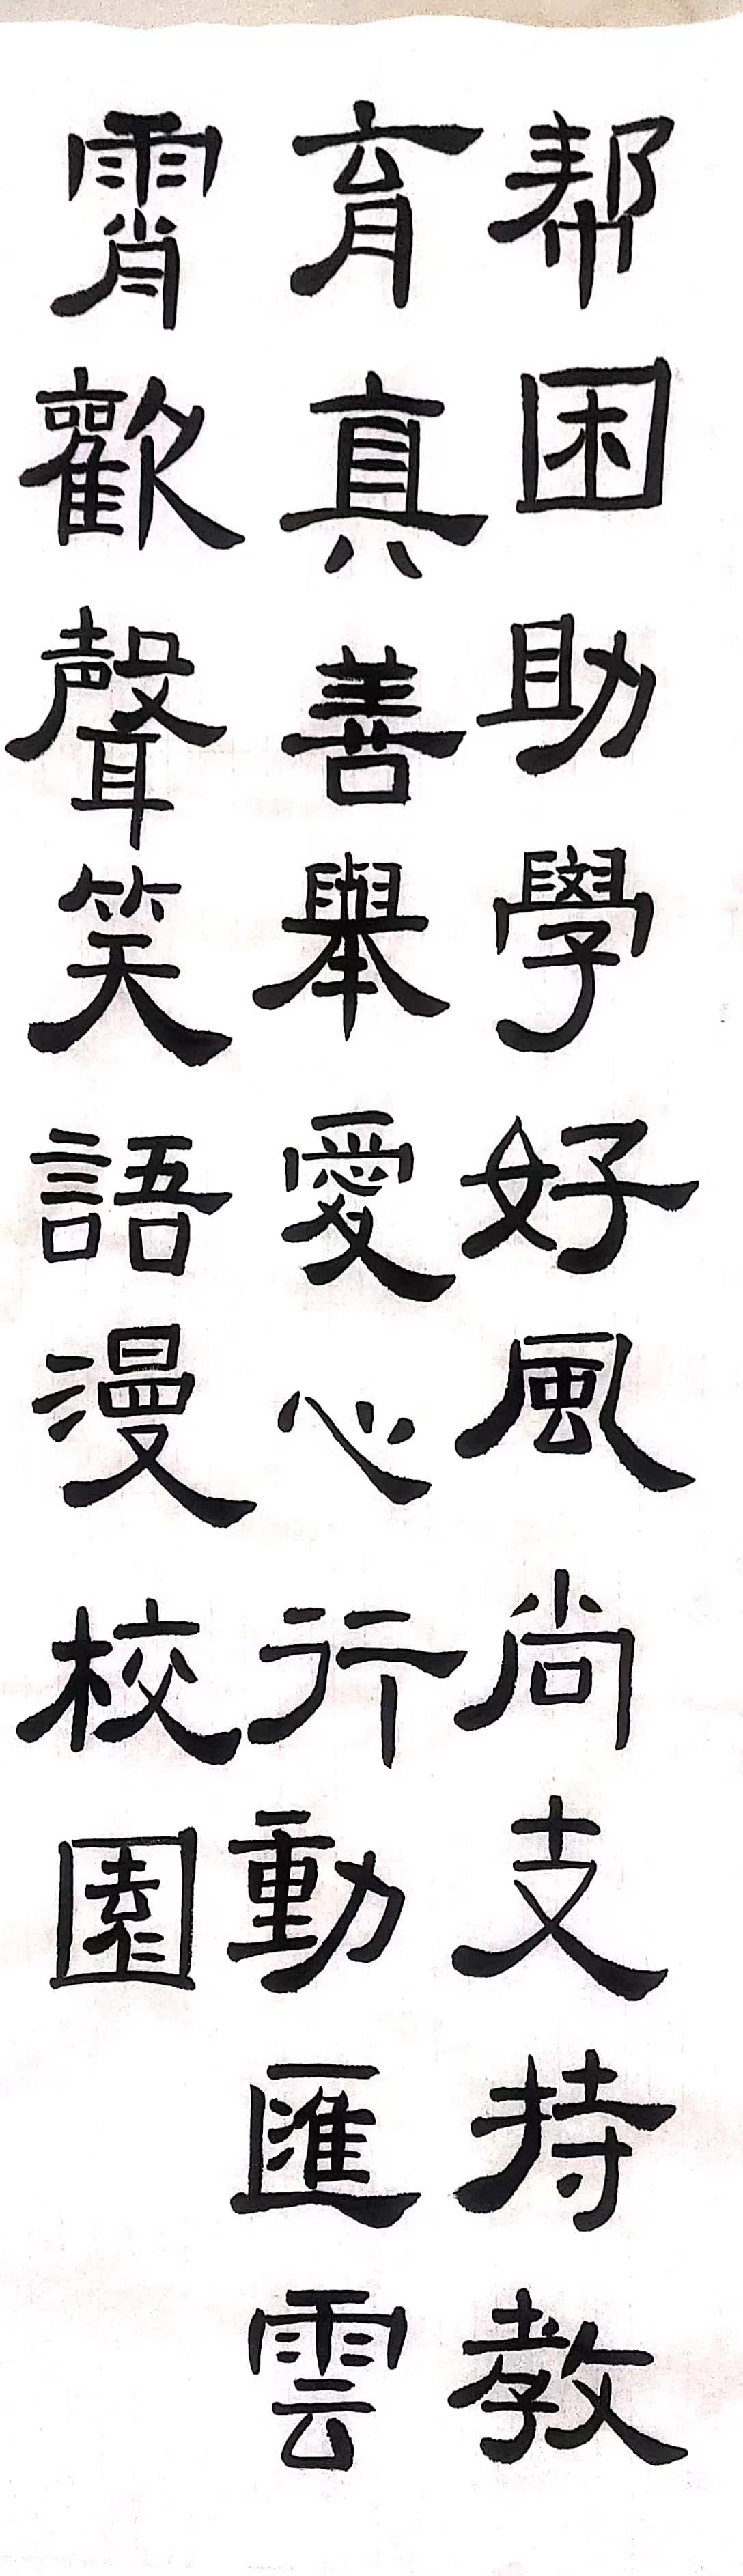 帮困助學好風尚支持教
育真善舉愛心行動匯雲
霄歡聲笑語漫校園